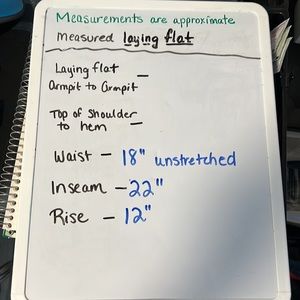 Measurements are approximate
Measured laying flat
Laying flat
Armpit to Armpit —
Top of Shoulder
to hem —
Waist — 18" unstretched
Inseam — 22"
Rise — 12"